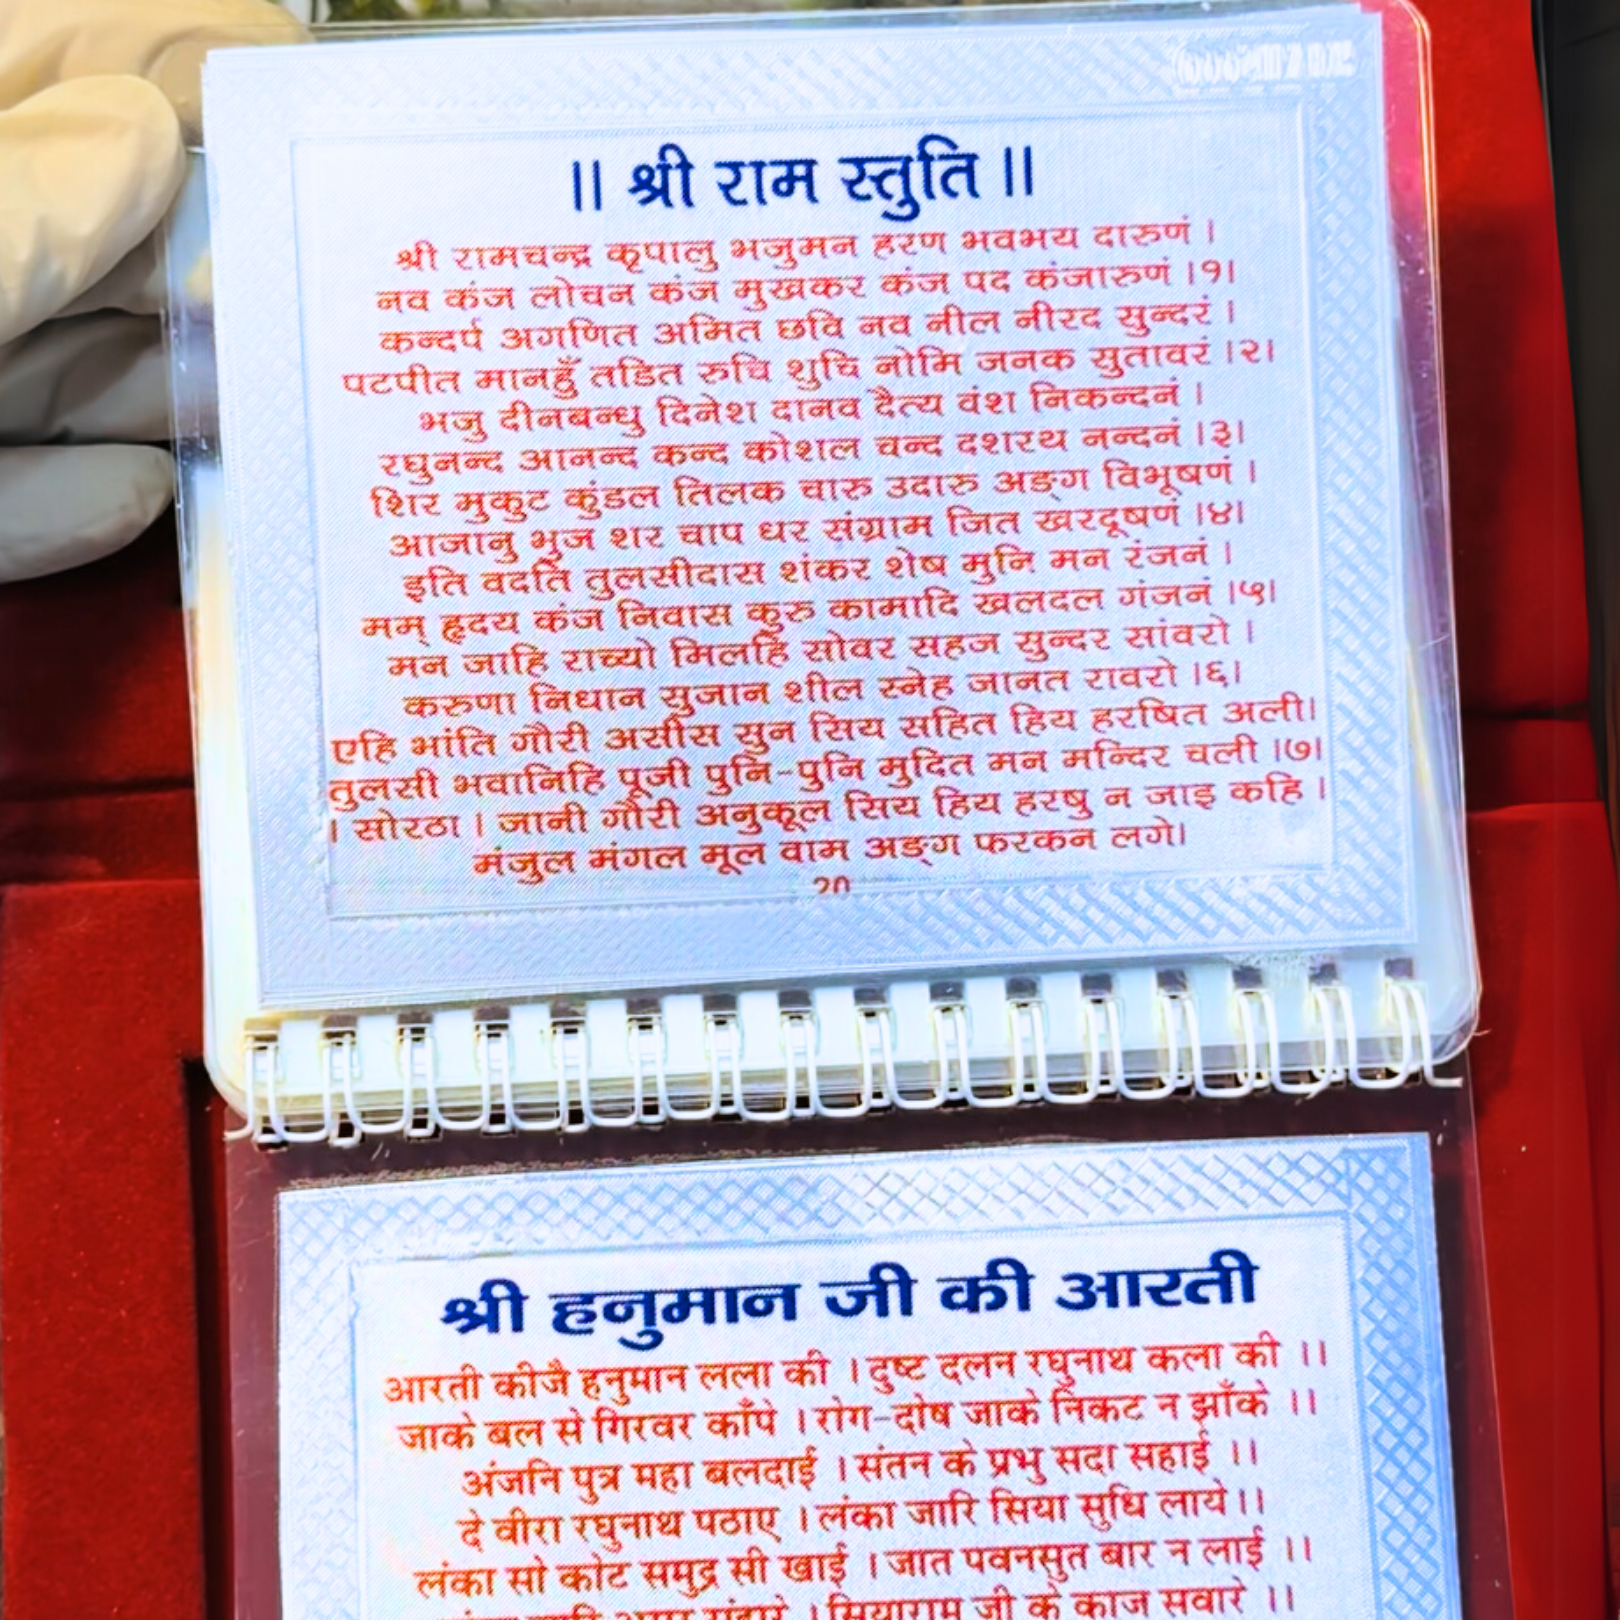 || श्री राम स्तुति ||
श्री रामचन्द्र कृपालु भजुमन हरण भवभय दारुणं ।
नव कंज लोचन कंज मुखकर कंज पद कंजारुणं ।१।
कन्दर्प अगणित अमित छवि नव नील नीरद सुन्दरं ।
पटपीत मानहुँ तडित रुचि शुचि नोमि जनक सुतावरं ।२।
भजु दीनबन्धु दिनेश दानव दैत्य वंश निकन्दनं ।
रघुनन्द आनन्द कन्द कोशल चन्द दशरथ नन्दनं ।३।
शिर मुकुट कुंडल तिलक चारु उदारु अङ्ग विभूषणं ।
आजानु भुज शर चाप धर संग्राम जित खरदूषणं ।४।
इति वदति तुलसीदास शंकर शेष मुनि मन रंजनं ।
मम् हृदय कंज निवास कुरु कामादि खलदल गंजनं ।५।
मन जाहि राच्यो मिलहि सोवर सहज सुन्दर सांवरो ।
करुणा निधान सुजान शील स्नेह जानत रावरो ।६।
एहि भांति गौरी असीस सुन सिय सहित हिय हरषित अली।
तुलसी भवानिहि पूजी पुनि-पुनि मुदित मन मन्दिर चली ।७।
। सोरठा । जानी गौरी अनुकूल सिय हिय हरषु न जाइ कहि ।
मंजुल मंगल मूल वाम अङ्ग फरकन लगे।
20
श्री हनुमान जी की आरती
आरती कीजै हनुमान लला की । दुष्ट दलन रघुनाथ कला की ।।
जाके बल से गिरवर काँपे । रोग-दोष जाके निकट न झाँके ।।
अंजनि पुत्र महा बलदाई । संतन के प्रभु सदा सहाई ।।
दे वीरा रघुनाथ पठाए । लंका जारि सिया सुधि लाये ।।
लंका सो कोट समुद्र सी खाई । जात पवनसुत बार न लाई ।।
। सियाराम जी के काज सवारे ।।